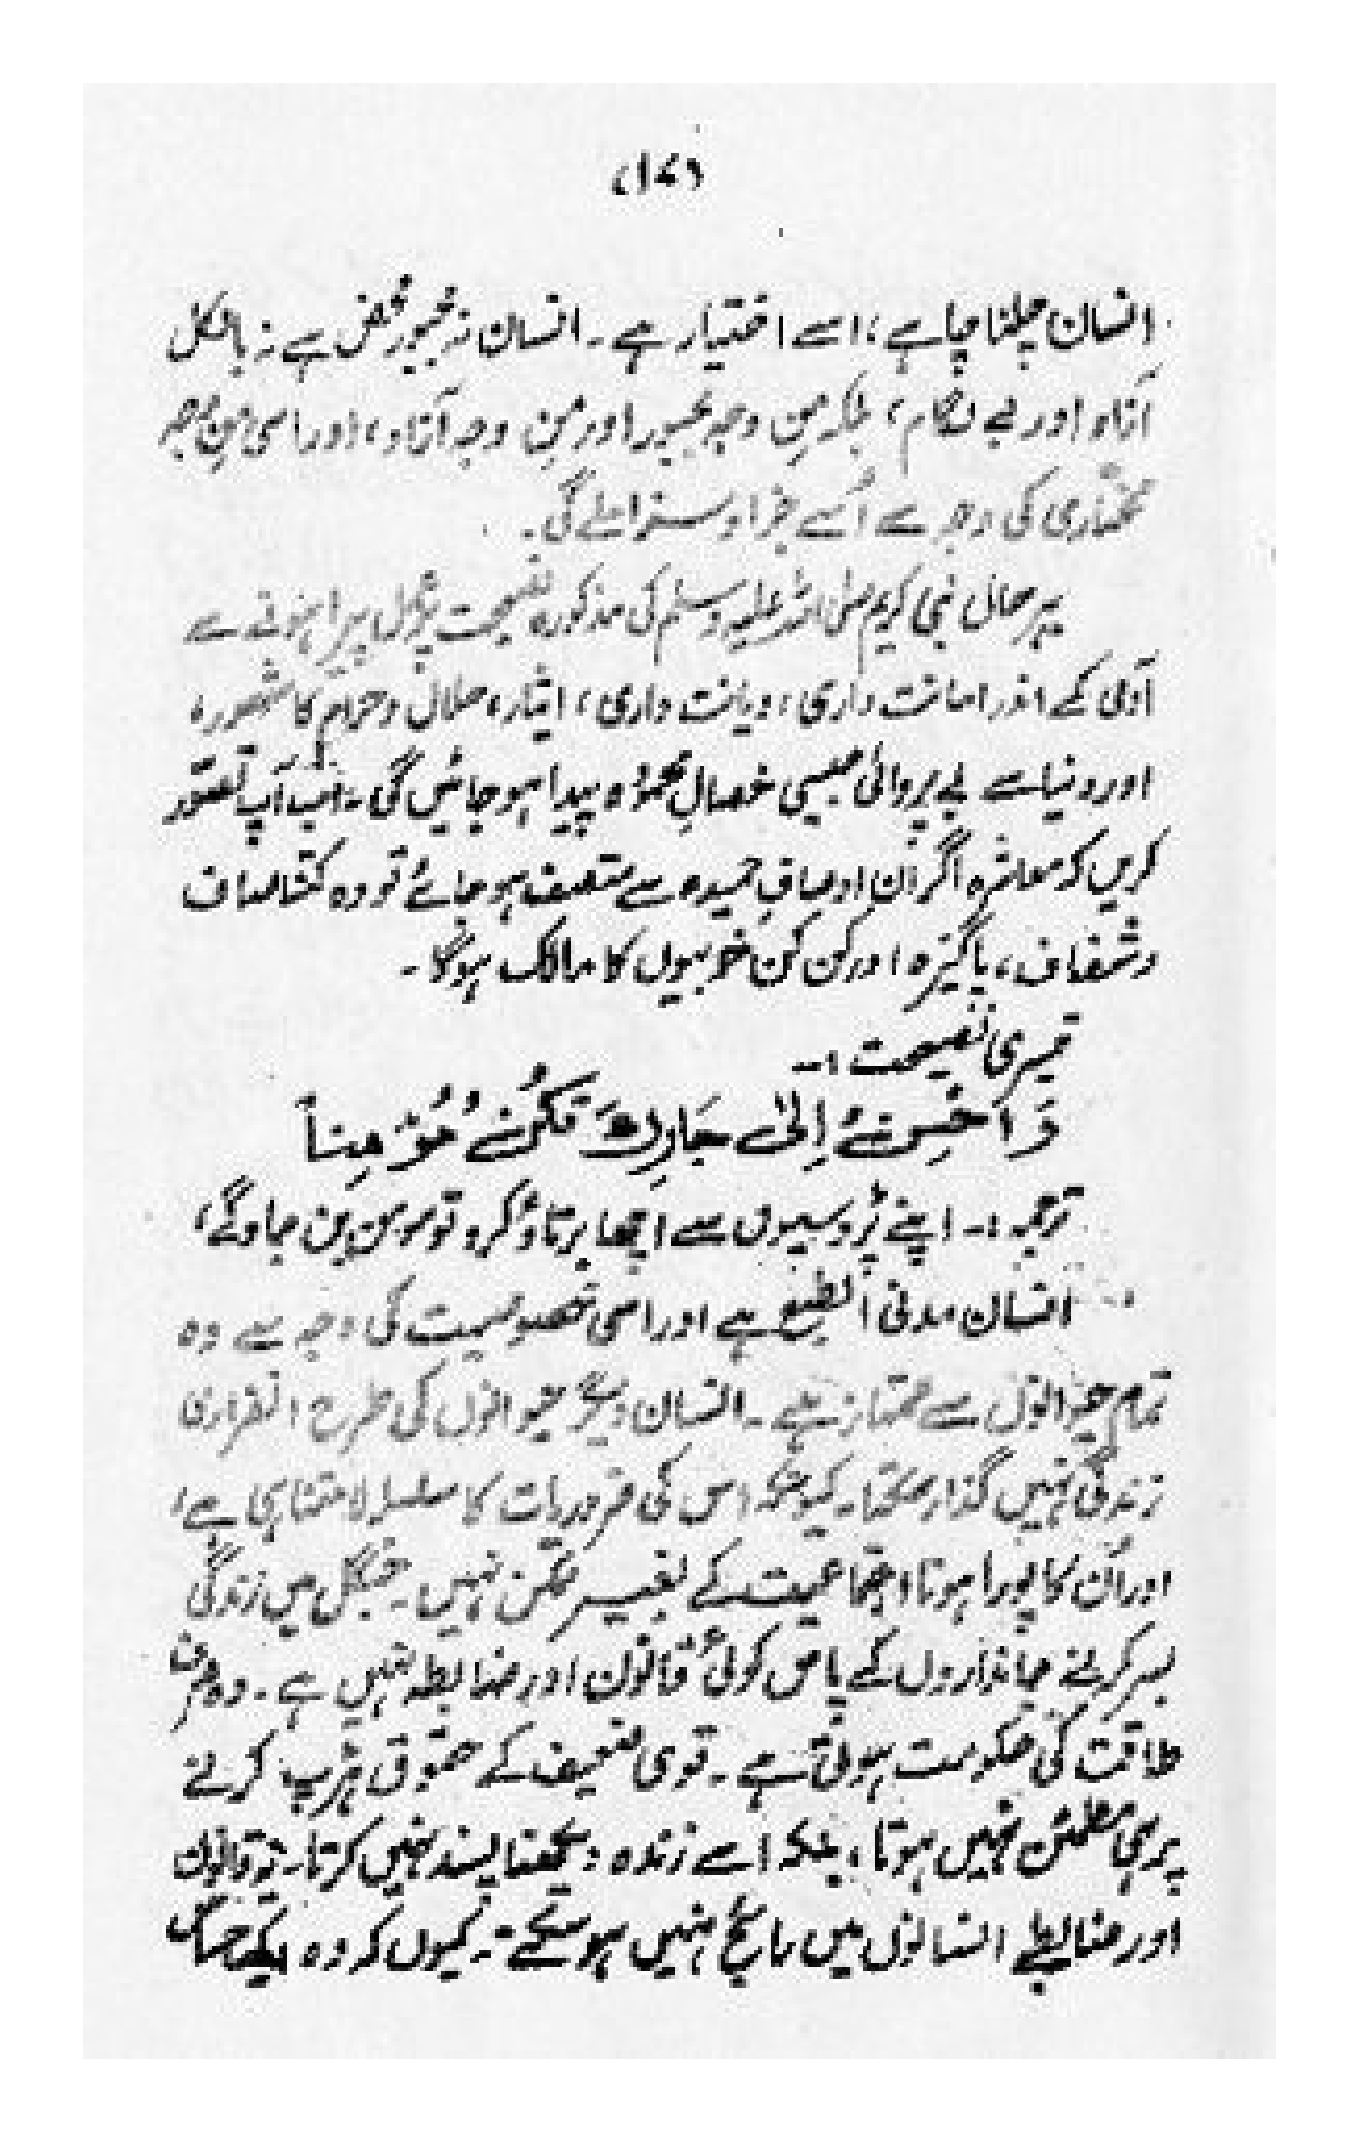 (۱۷)
انسان چلنا چاہے، اسے اختیار ہے۔ انسان نہ مجبور محض ہے نہ بالکل
آزاد اور بے لگام، بلکہ مِن وجہ مجبور اور مِن وجہ آزاد، اور اسی مِن وجہ
مختاری کی وجہ سے اُسے جزا و سزا ملے گی۔
بہرحال نبی کریم صلی اللہ علیہ وسلم کی مذکورہ نصیحت پر عمل پیرا ہونے سے
آدمی کے اندر امانت داری، دیانت داری، ایثار، حلال و حرام کا شعور،
اور دنیا سے بے پروائی جیسی خصالِ محمودہ پیدا ہو جائیں گی۔ اب آپ تصور
کریں کہ معاشرہ اگر ان اوصافِ حمیدہ سے متصف ہو جائے تو وہ کتنا صاف
و شفاف، پاکیزہ اور کن کن خوبیوں کا مالک ہوگا۔
تیسری نصیحت :۔
وَاَحْسِنْ اِلٰی جَارِكَ تَكُنْ مُؤْمِناً
ترجمہ :۔ اپنے پڑوسیوں سے اچھا برتاؤ کرو تو مومن بن جاوگے،
انسان مدنی الطبع ہے اور اسی خصوصیت کی وجہ سے وہ
تمام حیوانوں سے ممتاز ہے۔ انسان دیگر حیوانوں کی طرح انفرادی
زندگی نہیں گذار سکتا۔ کیونکہ اس کی ضروریات کا سلسلہ لامتناہی ہے،
اور اُن کا پورا ہونا اجتماعیت کے بغیر ممکن نہیں۔ جنگل میں زندگی
بسر کرنے جانداروں کے پاس کوئی قانون اور ضابطہ نہیں ہے۔ وہاں صرف
طاقت کی حکومت ہوتی ہے۔ قوی ضعیف کے حقوق ہڑپ کرنے
پر ہی مطمئن نہیں ہوتا، بلکہ اسے زندہ دیکھنا پسند نہیں کرتا۔ یہ قانون
اور ضابطے انسانوں میں رائج نہیں ہو سکتے۔ کیوں کہ وہ ایک حساس